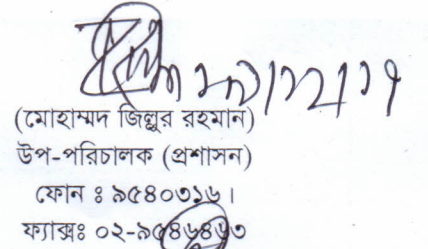 (মোহাম্মদ জিল্লুর রহমান)
উপ-পরিচালক (প্রশাসন)
ফোন ঃ ৯৫৪০৩১৬।
ফ্যাক্সঃ